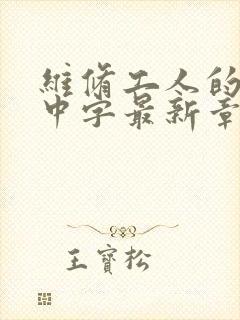 維脩工人的
中字最新章
王寶松